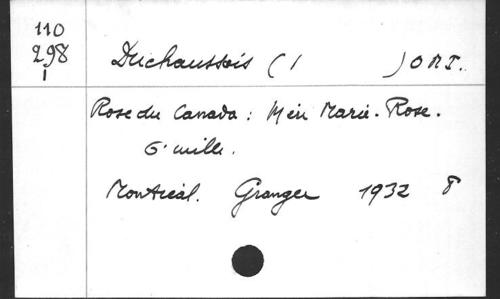 110
298
1
Duchaussois ( / ) O M I.
Rose du Canada : Mère Marie-Rose.
6e mille.
Montréal. Granger 1932 8